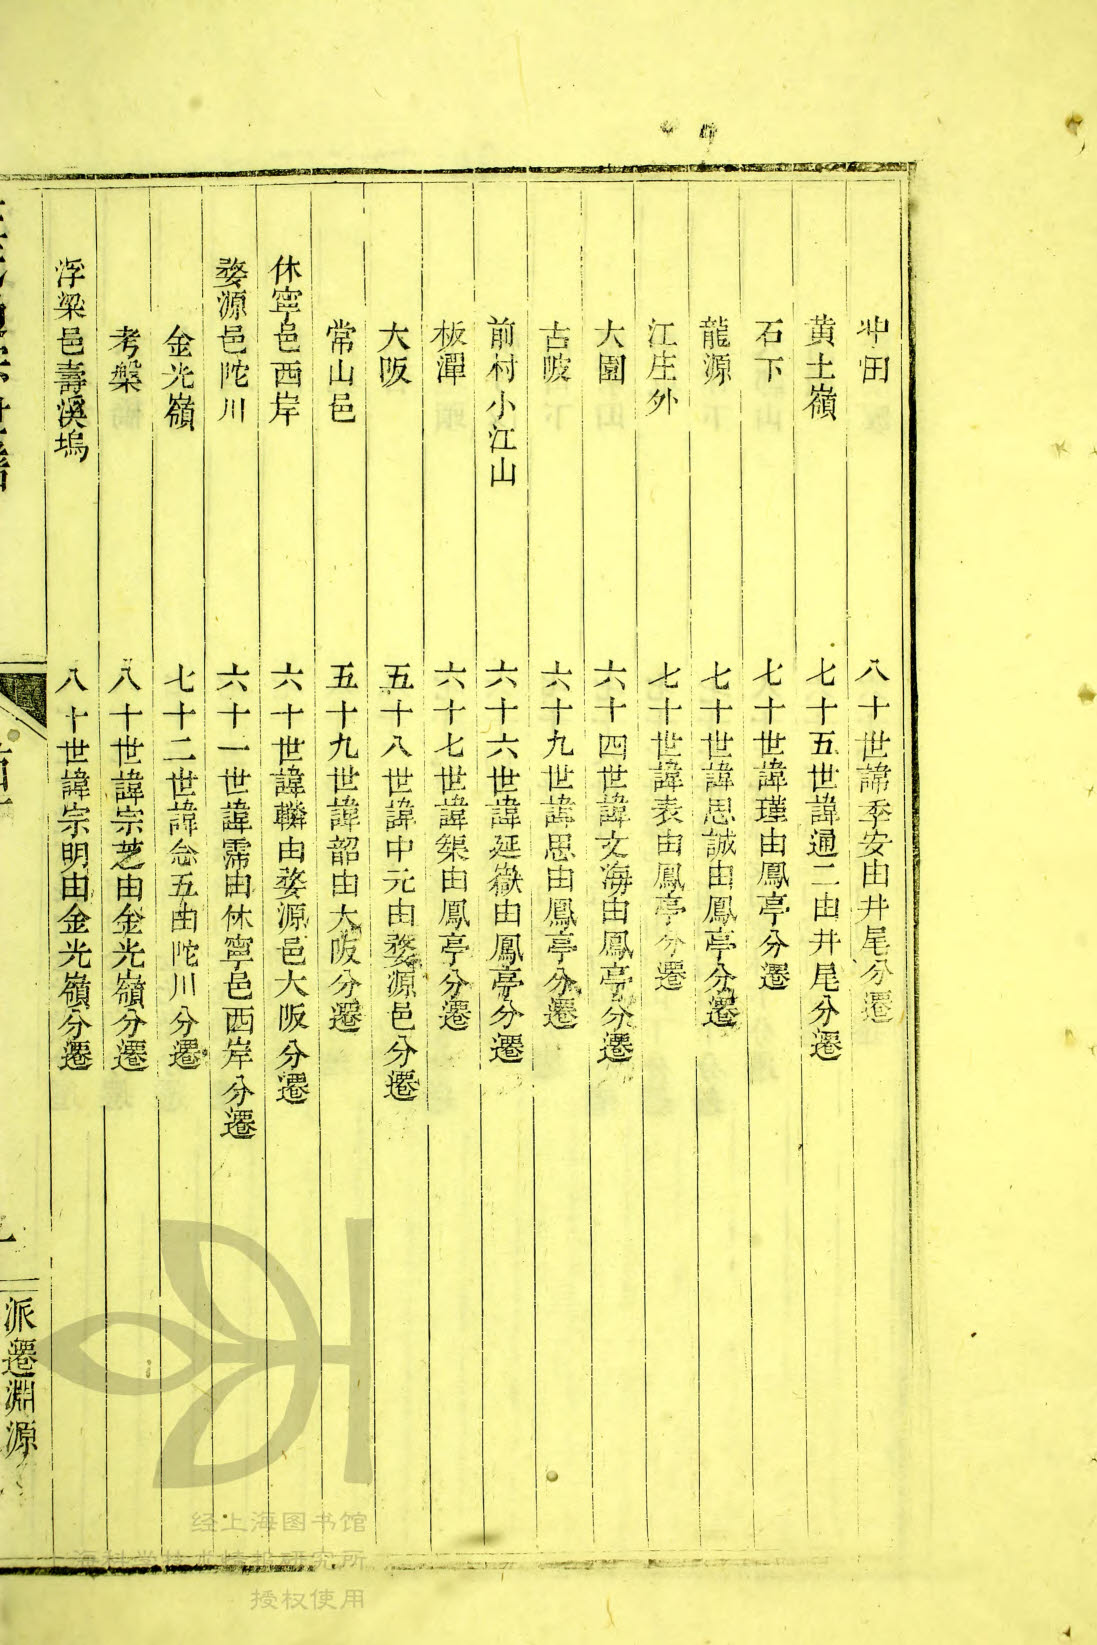 冲田 八十世諱季安由井尾分遷
黄土嶺 七十五世諱通二由井尾分遷
石下 七十世諱瑾由鳳亭分遷
龍源 七十世諱思誠由鳳亭分遷
江庄外 七十世諱表由鳳亭分遷
大園 六十四世諱文海由鳳亭分遷
古陂 六十九世諱思由鳳亭分遷
前村小江山 六十六世諱延嶽由鳳亭分遷
板潭 六十七世諱榘由鳳亭分遷
大阪 五十八世諱中元由婺源邑分遷
常山邑 五十九世諱韶由大阪分遷
休寧邑西岸 六十世諱轔由婺源邑大阪分遷
婺源邑陀川 六十一世諱霈由休寧邑西岸分遷
金光嶺 七十二世諱念五由陀川分遷
考槃 八十世諱宗芝由金光嶺分遷
浮梁邑壽溪塢 八十世諱宗明由金光嶺分遷
派遷淵源
经上海图书馆
上海科学技术情报研究所
授权使用